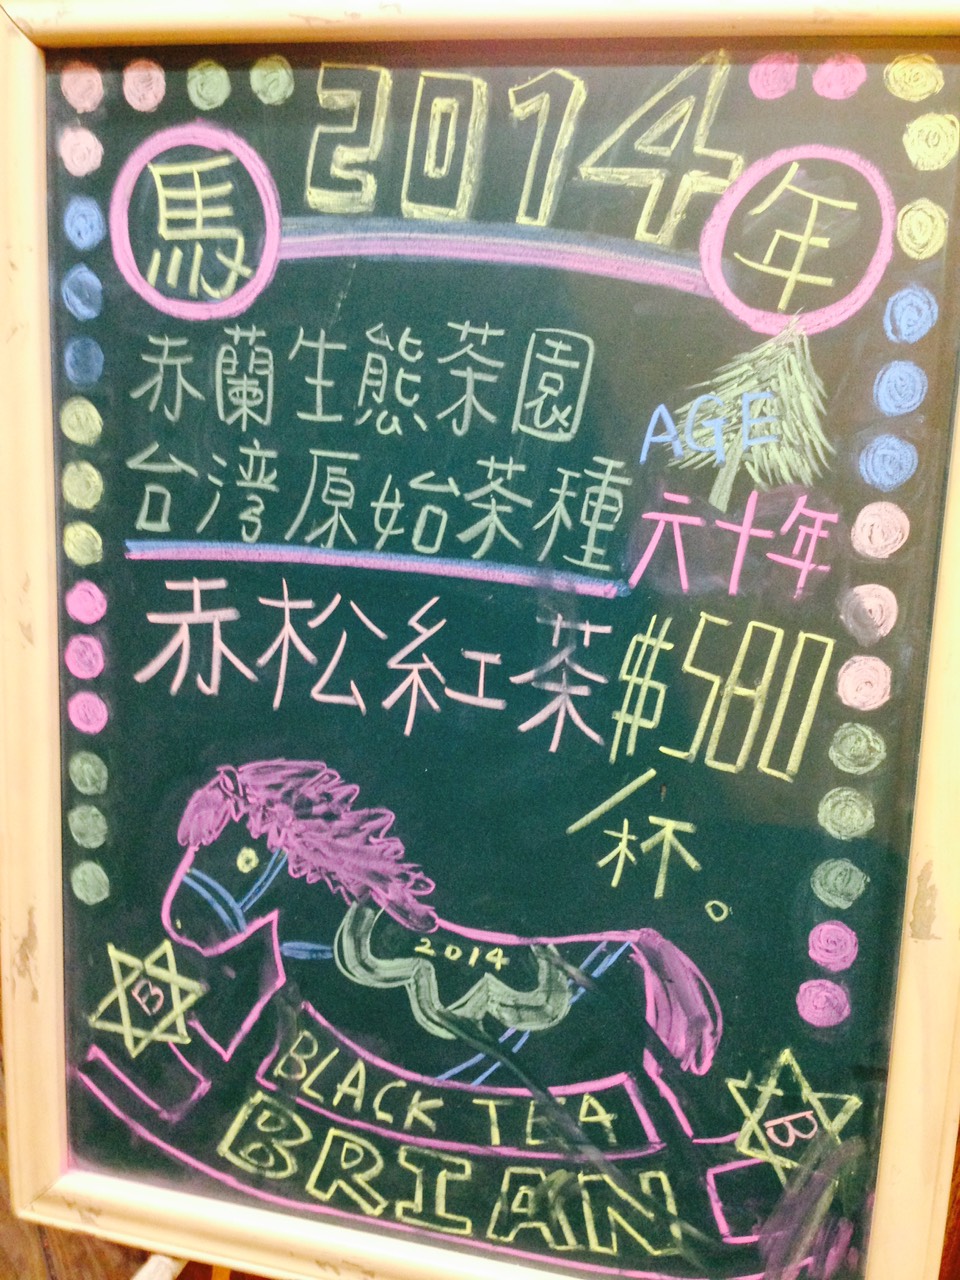 2014
馬 年
赤蘭生態茶園
AGE
台湾原始茶種
六十年
赤松紅茶$580
/杯。
2014
B
BLACK TEA
B
BRIAN